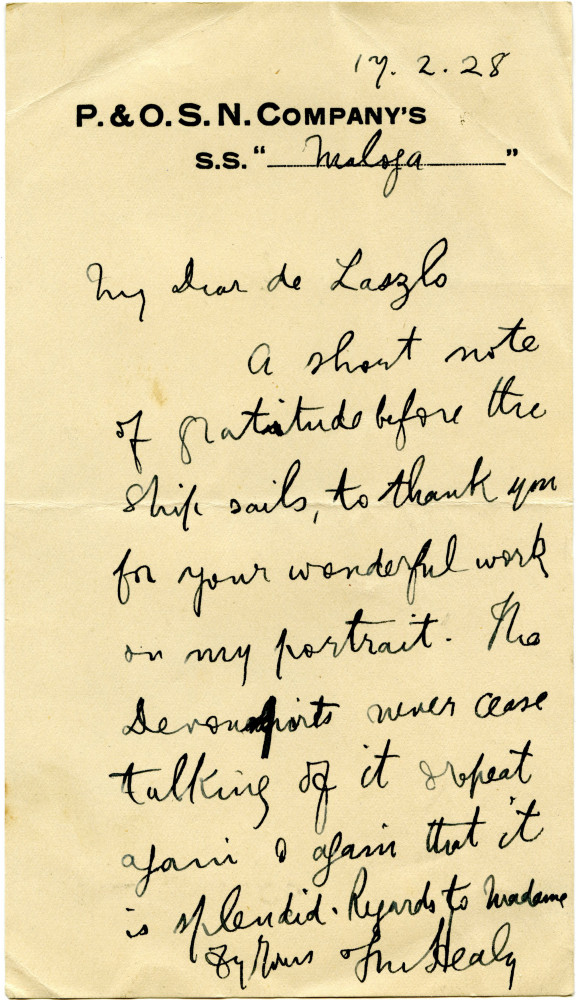 17. 2. 28
P. & O. S. N. COMPANY'S
S.S. " Maloja "
My Dear de Laszlo
A short note
of gratitude before the
ship sails, to thank you
for your wonderful work
on my portrait. The
Devonports never cease
talking of it & repeat
again & again that it
is splendid. Regards to Madame
Yours Healy